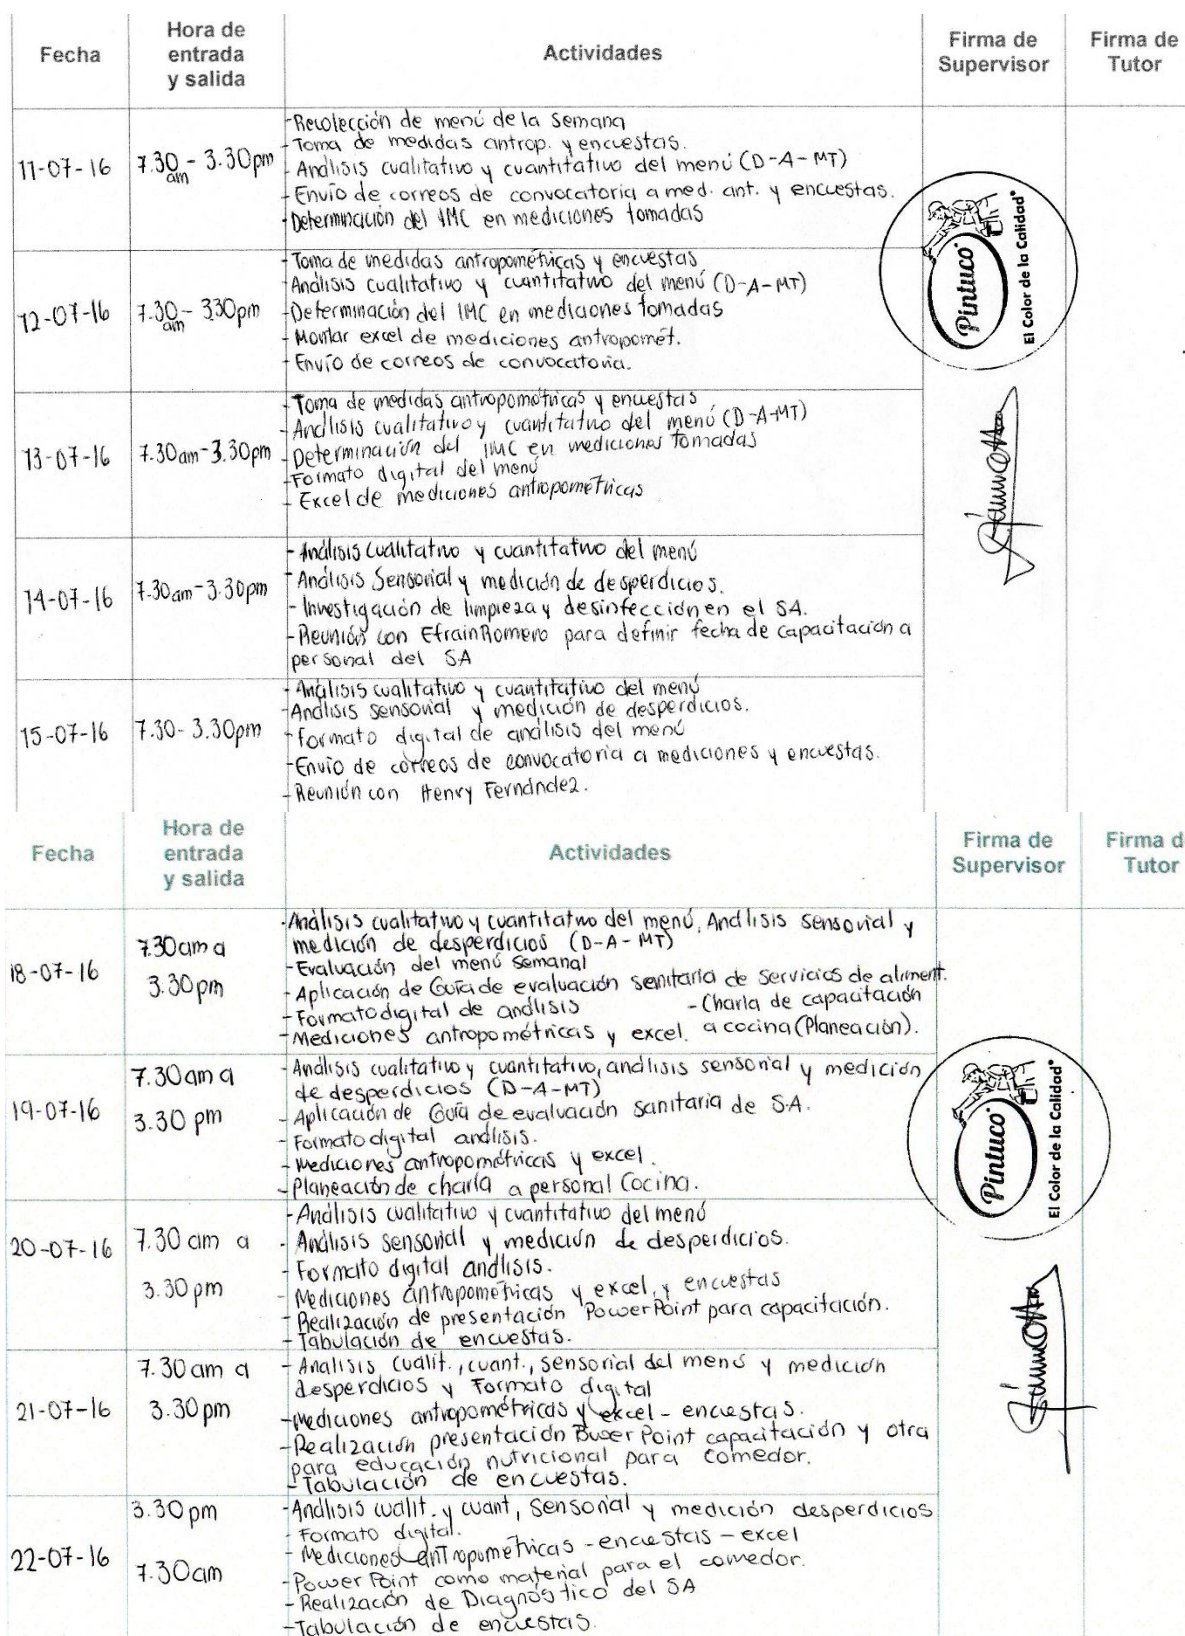 Fecha
Hora de
entrada
y salida
Actividades
Firma de
Supervisor
Firma de
Tutor
11-07-16
7.30 - 3.30pm
am
-Recolección de menú de la semana
-Toma de medidas antrop. y encuestas.
-Análisis cualitativo y cuantitativo del menú (D-A-MT)
-Envío de correos de convocatoria a med. ant. y encuestas.
-Determinación del IMC en mediciones tomadas
Pintuco®
El Color de la Calidad®
12-07-16
7.30 - 330pm
am
-Toma de medidas antropométricas y encuestas
-Análisis cualitativo y cuantitativo del menú (D-A-MT)
-Determinación del IMC en mediciones tomadas
-Montar excel de mediciones antropomét.
-Envío de correos de convocatoria.
13-07-16
7.30am-3.30pm
-Toma de medidas antropométricas y encuestas
-Análisis cualitativo y cuantitativo del menú (D-A-MT)
-Determinación del IMC en mediciones tomadas
-Formato digital del menú
-Excel de mediciones antropométricas
14-07-16
7.30am-3.30pm
-Análisis cualitativo y cuantitativo del menú
-Análisis Sensorial y medición de desperdicios.
-Investigación de limpieza y desinfección en el SA.
-Reunión con Efraín Romero para definir fecha de capacitación a
personal del SA
15-07-16
7.30-3.30pm
-Análisis cualitativo y cuantitativo del menú
-Análisis sensorial y medición de desperdicios.
-Formato digital de análisis del menú
-Envío de correos de convocatoria a mediciones y encuestas.
-Reunión con Henry Fernández.
Fecha
Hora de
entrada
y salida
Actividades
Firma de
Supervisor
Firma d
Tutor
18-07-16
7.30am a
3.30pm
-Análisis cualitativo y cuantitativo del menú, Análisis sensorial y
medición de desperdicios (D-A-MT)
-Evaluación del menú semanal
-Aplicación de Guía de evaluación sanitaria de servicios de aliment.
-Formato digital de análisis -Charla de capacitación
-Mediciones antropométricas y excel. a cocina (Planeación).
19-07-16
7.30am a
3.30 pm
-Análisis cualitativo y cuantitativo, análisis sensorial y medición
de desperdicios (D-A-MT)
-Aplicación de Guía de evaluación sanitaria de S.A.
-Formato digital análisis.
-Mediciones antropométricas y excel.
-Planeación de charla a personal Cocina.
Pintuco®
El Color de la Calidad®
20-07-16
7.30 am a
3.30 pm
-Análisis cualitativo y cuantitativo del menú
-Análisis sensorial y medición de desperdicios.
-Formato digital análisis.
-Mediciones antropométricas y excel, y encuestas
-Realización de presentación PowerPoint para capacitación.
-Tabulación de encuestas.
21-07-16
7.30 am a
3.30 pm
-Análisis cualit., cuant., sensorial del menú y medición
desperdicios y Formato digital
-Mediciones antropométricas y excel - encuestas.
-Realización presentación Power Point capacitación y otra
para educación nutricional para comedor.
-Tabulación de encuestas.
22-07-16
3.30 pm
7.30am
-Análisis cualit. y cuant, sensorial y medición desperdicios
-Formato digital.
-Mediciones antropométricas - encuestas - excel
-Power Point como material para el comedor.
-Realización de Diagnóstico del SA
-Tabulación de encuestas.